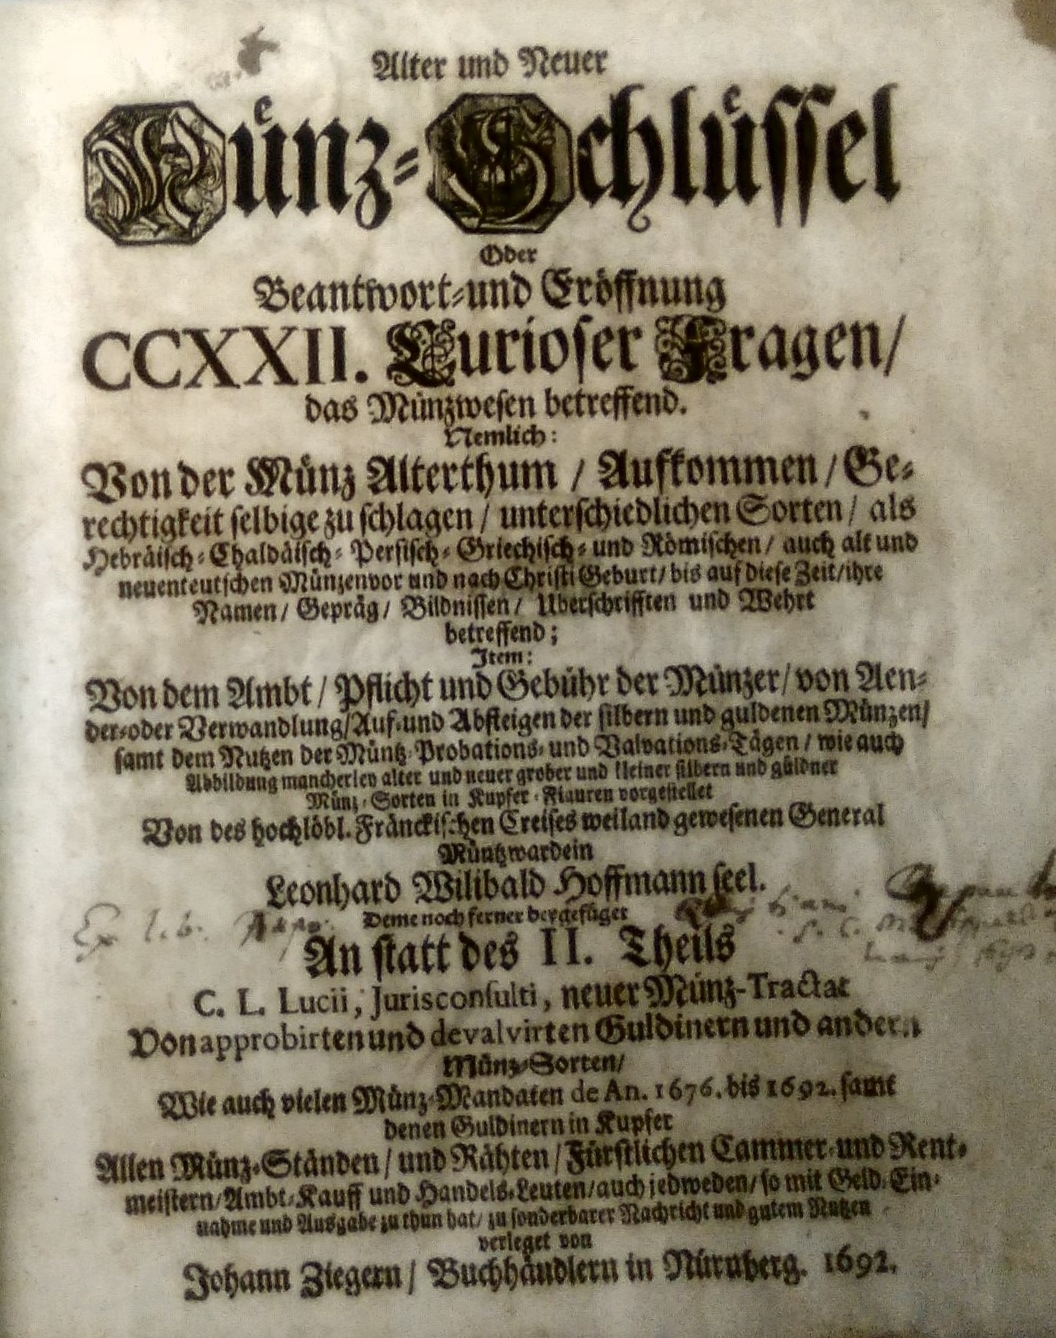 Alter und Neuer
Muͤnz-Schluͤssel
Oder
Beantwort- und Eröffnung
CCXXII. Curioser Fragen/
das Münzwesen betreffend.
Nemlich:
Von der Münz Alterthum / Aufkommen / Ge-
rechtigkeit selbige zu schlagen / unterschiedlichen Sorten / als
Hebräisch- Chaldäisch- Persisch- Griechisch- und Römischen / auch alt und
neuen teutschen Münzen vor und nach Christi Geburt / bis auf diese Zeit / ihre
Namen / Gepräg / Bildnissen / Uberschrifften und Wehrt
betreffend;
Item:
Von dem Ambt / Pflicht und Gebühr der Münzer / von Aen-
der- oder Verwandlung / Auf- und Absteigen der silbern und guldenen Münzen /
samt dem Nutzen der Müntz-Probations- und Valvations-Tägen / wie auch
Abbildung mancherley alter und neuer grober und kleiner silbern und güldner
Münz-Sorten in Kupfer-Figuren vorgestellet
Von des hochlöbl. Fränckischen Creises weiland gewesenen General
Müntzwardein
Leonhard Wilibald Hoffmann seel.
Deme noch ferner beygefüget
Ex lib.
An statt des II. Theils
C. L. Lucii, Jurisconsulti, neuer Münz-Tractat
Von approbirten und devalvirten Guldinern und andern
Münz-Sorten/
Wie auch vielen Münz-Mandaten de An. 1676. bis 1692. samt
denen Guldinern in Kupfer
Allen Münz-Ständen / und Rähten / Fürstlichen Cammer- und Rent-
meistern / Ambt- Kauff und Handels-Leuten / auch jedweden / so mit Geld-Ein-
nahme und Ausgabe zu thun hat / zu sonderbarer Nachricht und gutem Nutzen
verleget von
Johann Ziegern / Buchhändlern in Nürnberg. 1692.